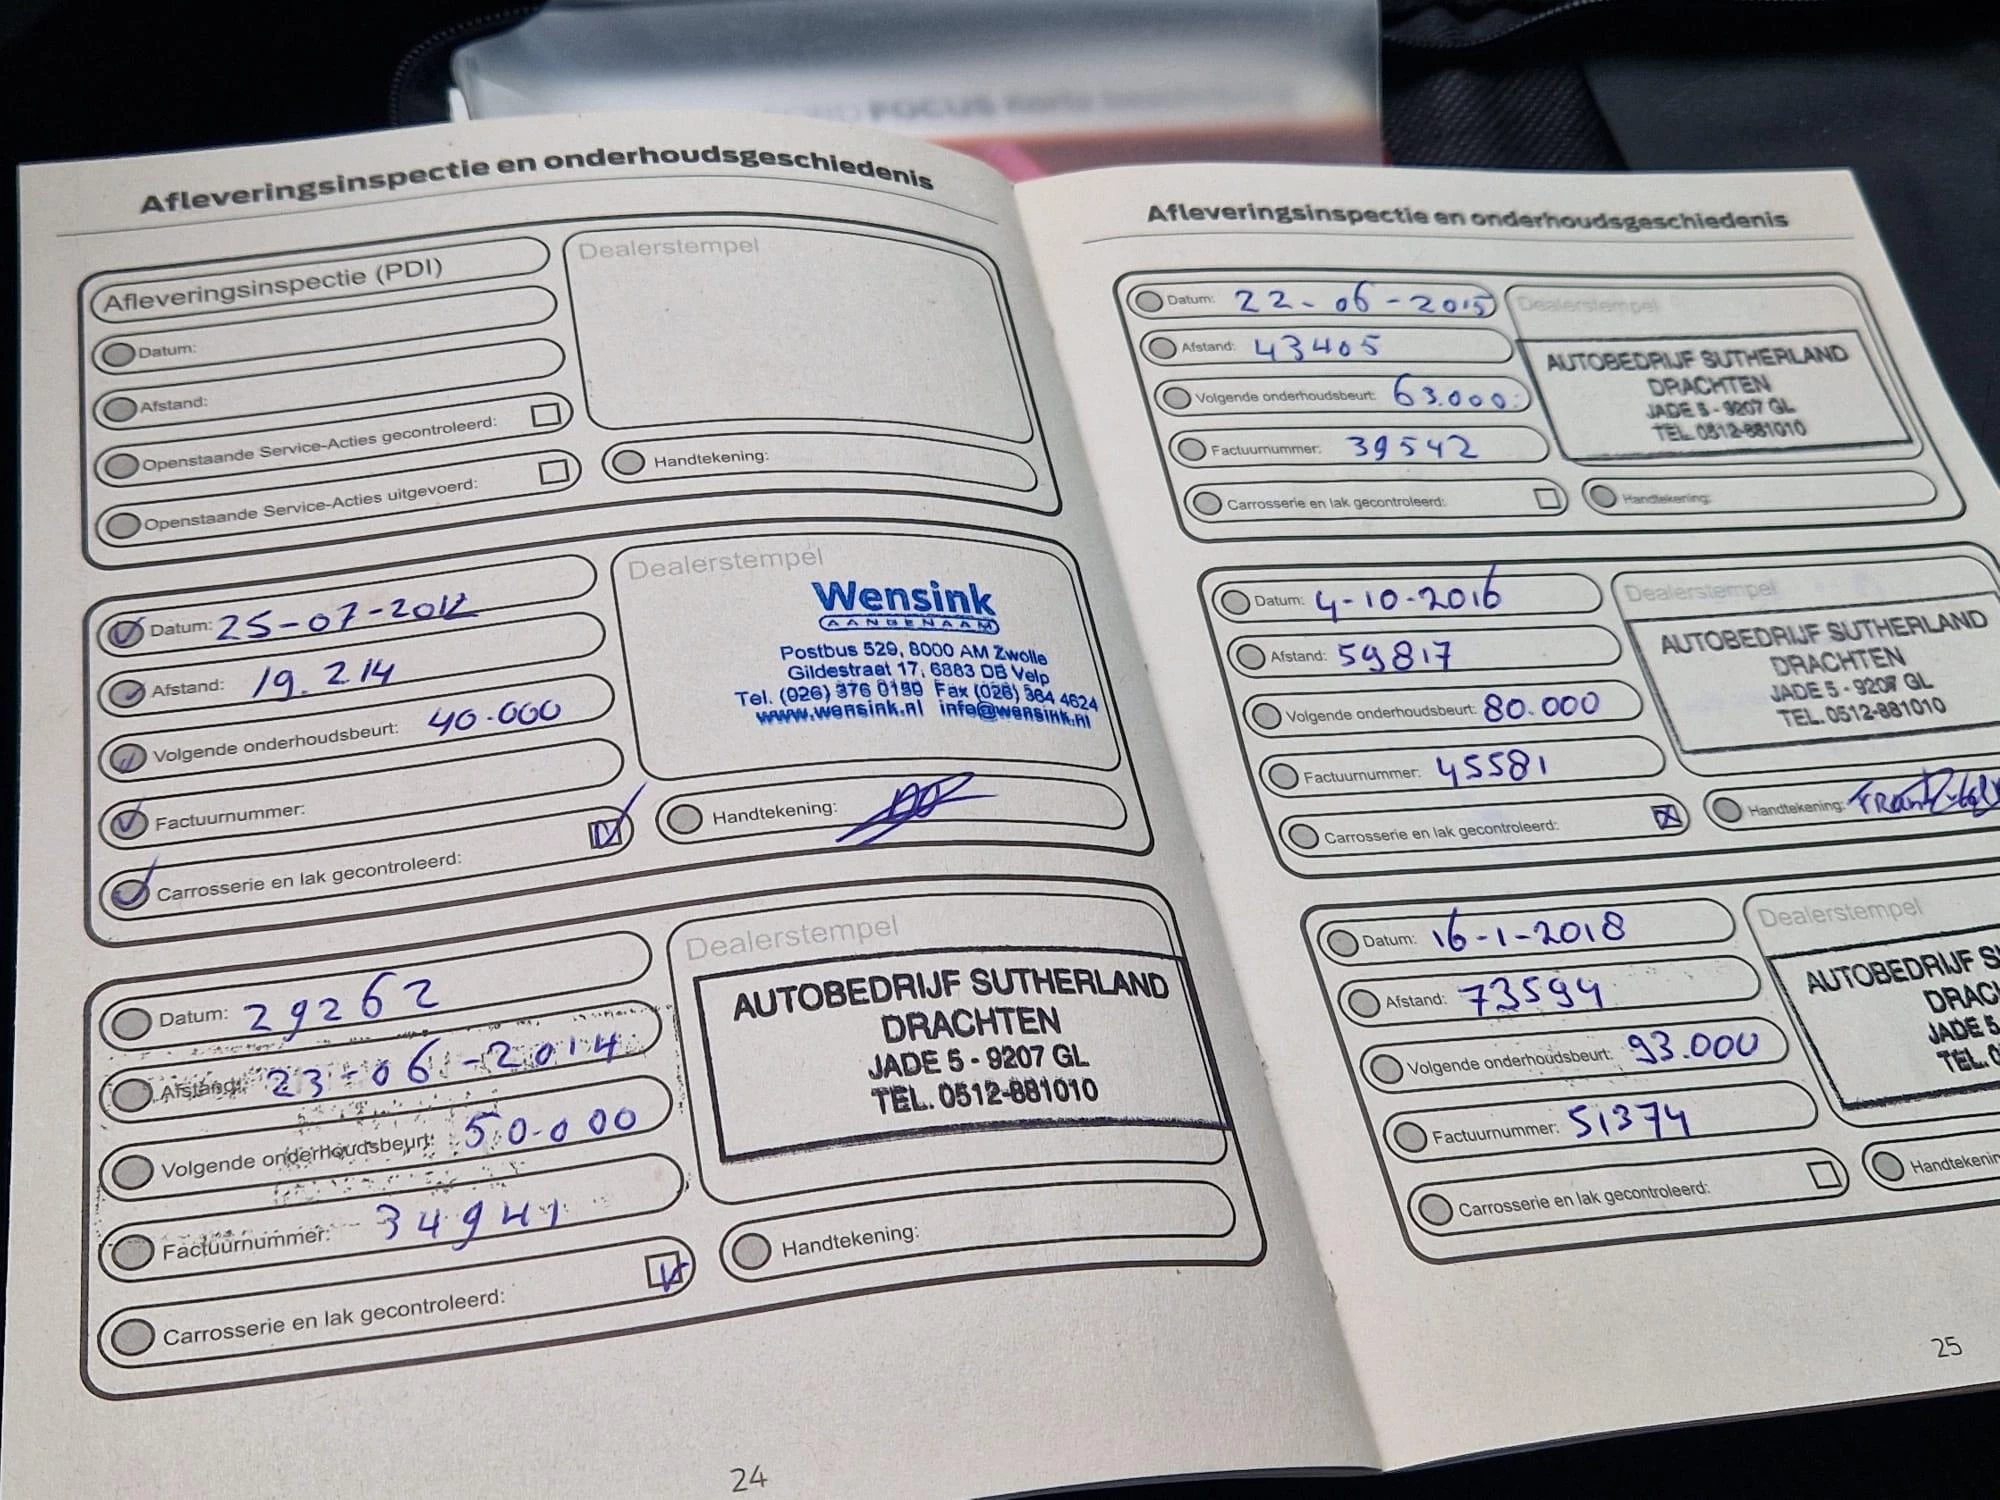 FOCUS
Afleveringsinspectie en onderhoudsgeschiedenis
Afleveringsinspectie (PDI)
Datum:
Afstand:
Openstaande Service-Acties gecontroleerd:
Openstaande Service-Acties uitgevoerd:
Dealerstempel
Handtekening:
Datum: 25-07-2012
Afstand: 19.214
Volgende onderhoudsbeurt: 40.000
Factuurnummer:
Carrosserie en lak gecontroleerd:
Dealerstempel
Wensink
AANGENAAM
Postbus 529, 8000 AM Zwolle
Gildestraat 17, 6883 DB Velp
Tel. (026) 376 0190 Fax (026) 364 4624
www.wensink.nl info@wensink.nl
Handtekening:
Datum: 29262
Afstand: 23-06-2014
Volgende onderhoudsbeurt: 50.000
Factuurnummer: 34941
Carrosserie en lak gecontroleerd:
Dealerstempel
AUTOBEDRIJF SUTHERLAND
DRACHTEN
JADE 5 - 9207 GL
TEL. 0512-881010
Handtekening:
24
Afleveringsinspectie en onderhoudsgeschiedenis
Datum: 22-06-2015
Afstand: 43405
Volgende onderhoudsbeurt: 63.000
Factuurnummer: 39542
Carrosserie en lak gecontroleerd:
Dealerstempel
AUTOBEDRIJF SUTHERLAND
DRACHTEN
JADE 5 - 9207 GL
TEL. 0512-881010
Handtekening:
Datum: 4-10-2016
Afstand: 59817
Volgende onderhoudsbeurt: 80.000
Factuurnummer: 45581
Carrosserie en lak gecontroleerd:
Dealerstempel
AUTOBEDRIJF SUTHERLAND
DRACHTEN
JADE 5 - 9207 GL
TEL. 0512-881010
Handtekening:
Datum: 16-1-2018
Afstand: 73594
Volgende onderhoudsbeurt: 93.000
Factuurnummer: 51374
Carrosserie en lak gecontroleerd:
Dealerstempel
AUTOBEDRIJF S
DRAC
JADE 5
TEL. 0
Handtekenin
25